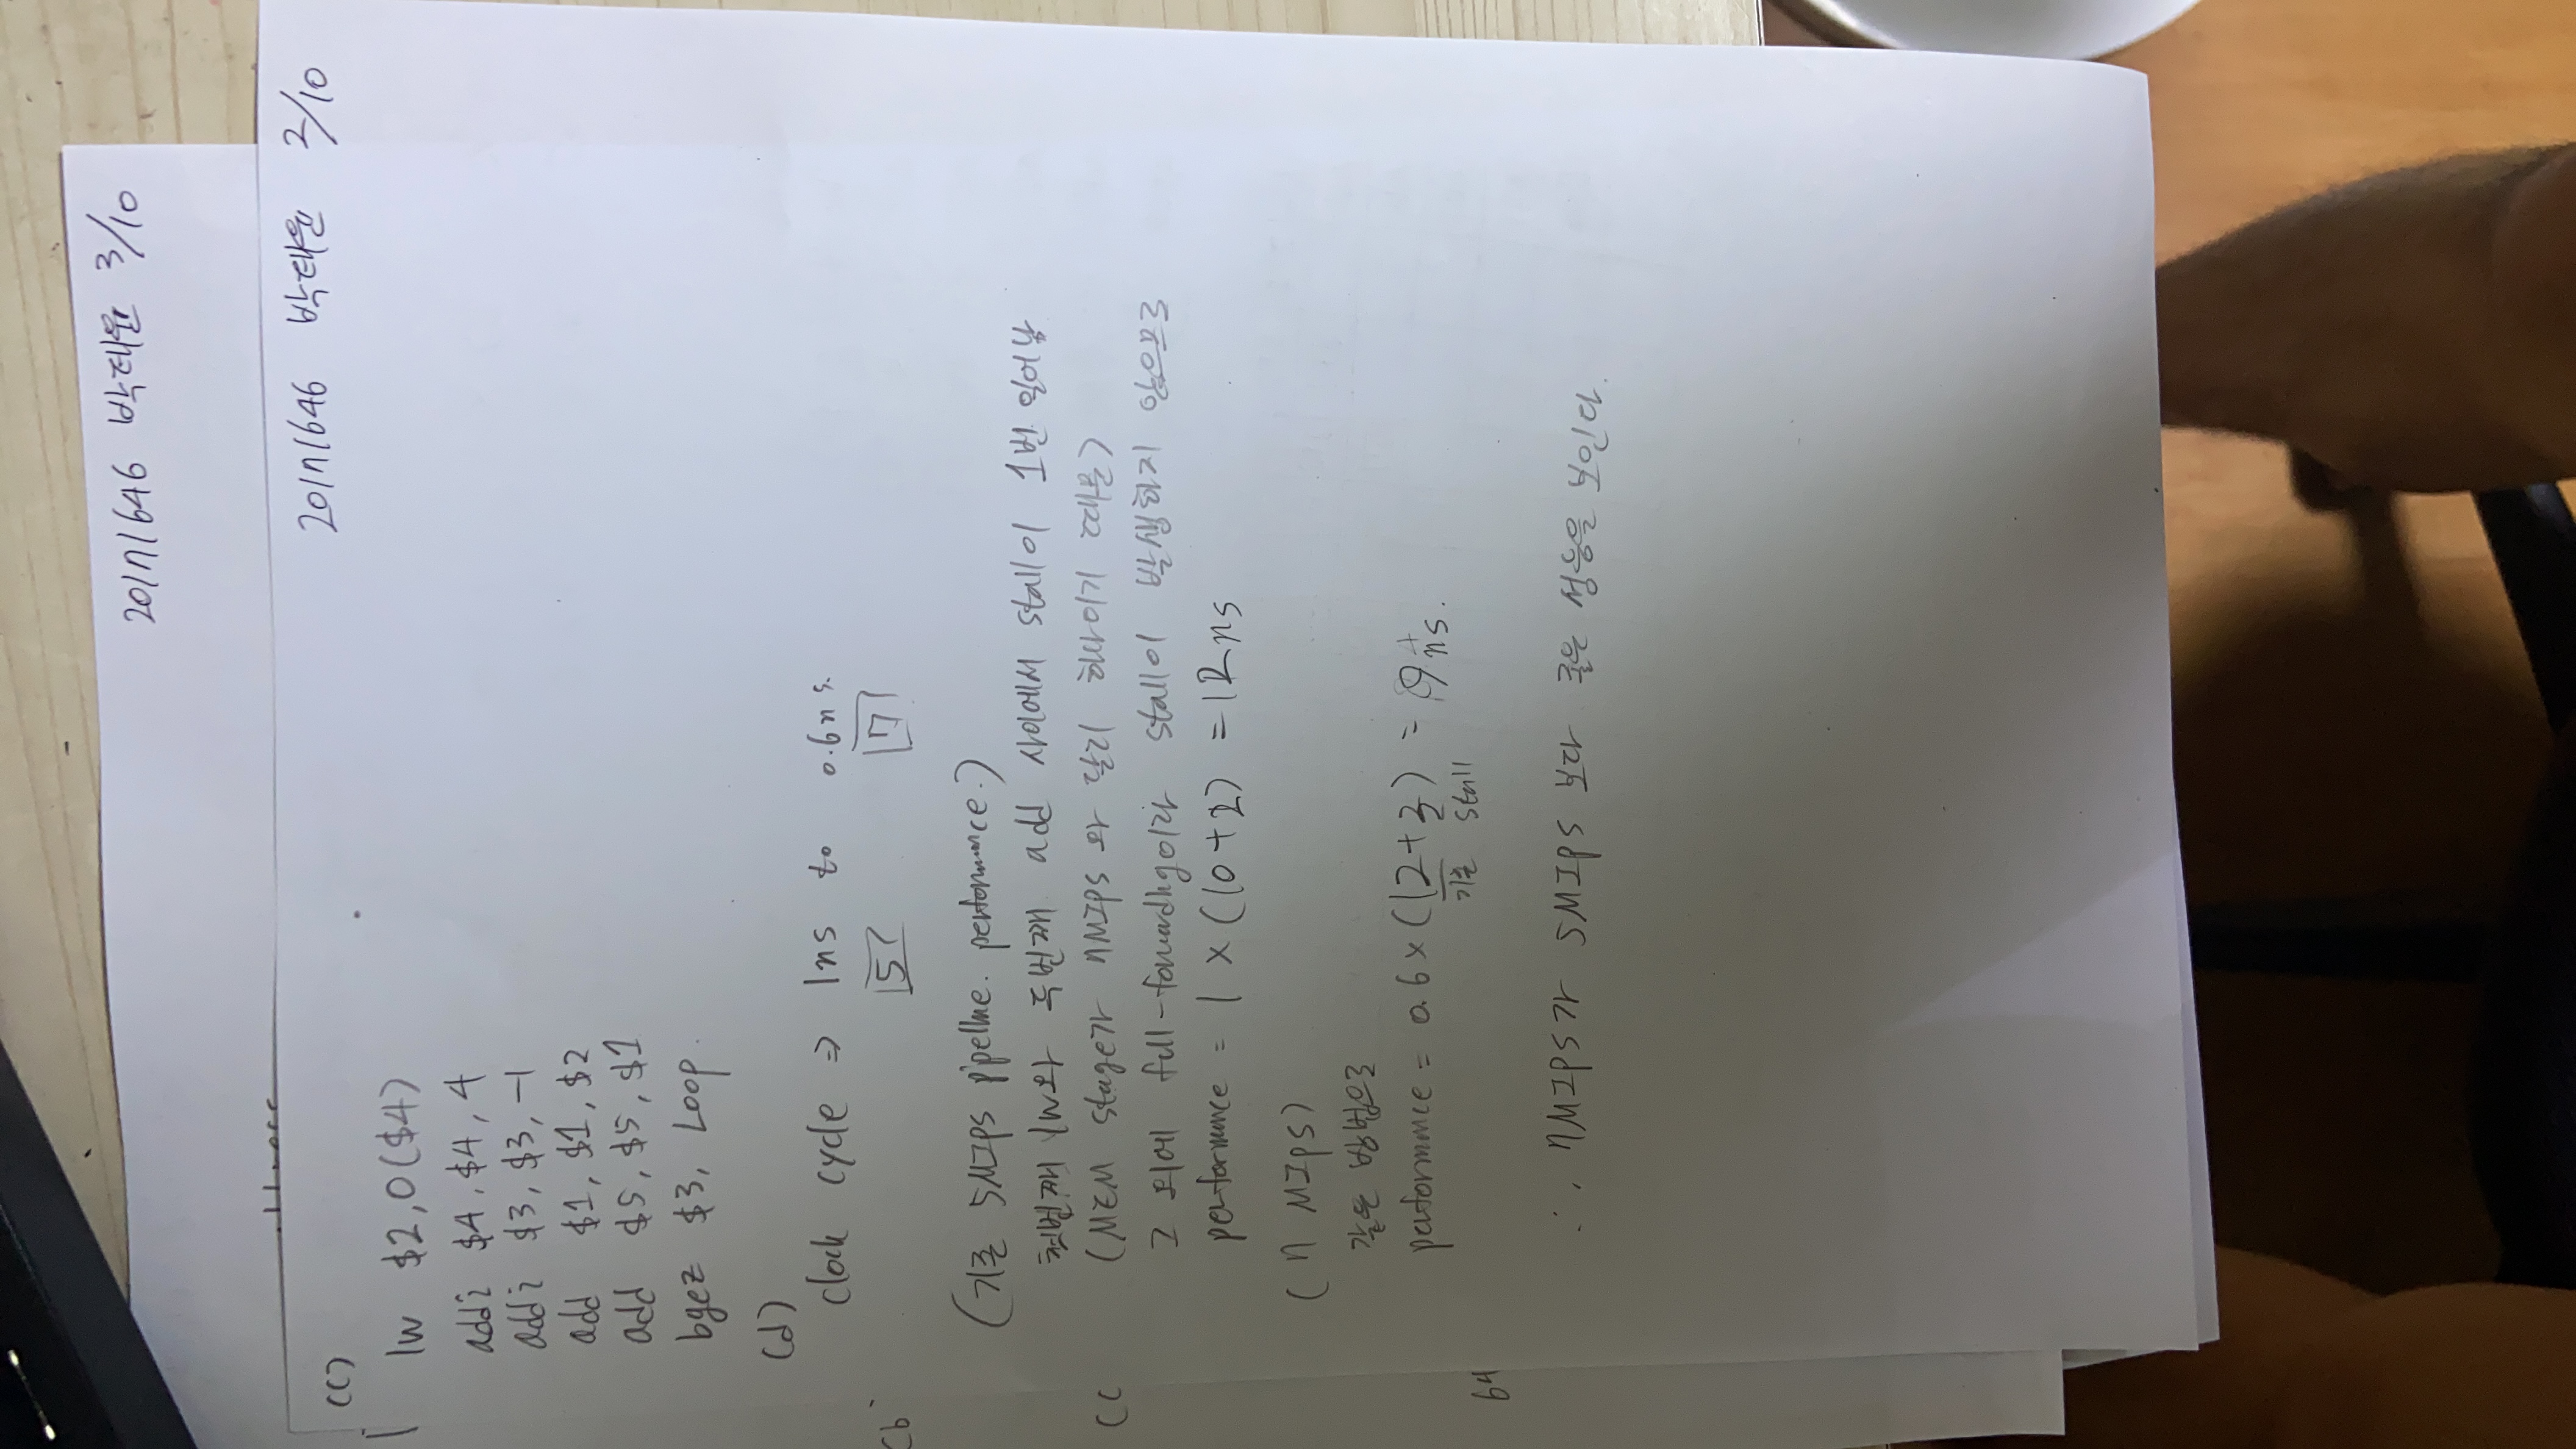 20171646 박태윤 3/10
20171646 박태윤 2/10
(c)
lw $2,0($4)
addi $4, $4, 4
addi $3, $3, -1
add $1, $1, $2
add $5, $5, $1
bgez $3, Loop.
(d)
clock cycle ⇒ 1ns to 0.6ns.
5 7
(b
(기존 5MIPS pipeline. performance.)
첫번째 lw와 두번째 add 사이에서 stall이 1번 일어남
(MEM stage가 7MIPS 와 달리 하나이기 때문)
(c
그 외에 full-forwarding이라 stall이 발생하지 않으므로
performance = 1 × (10+2) = 12ns
(7 MIPS)
같은 방법으로
performance = 0.6 × (12+3) = 9ns.
기존 stall
64
∴ 7MIPS가 5MIPS 보다 좋은 성능을 보인다.